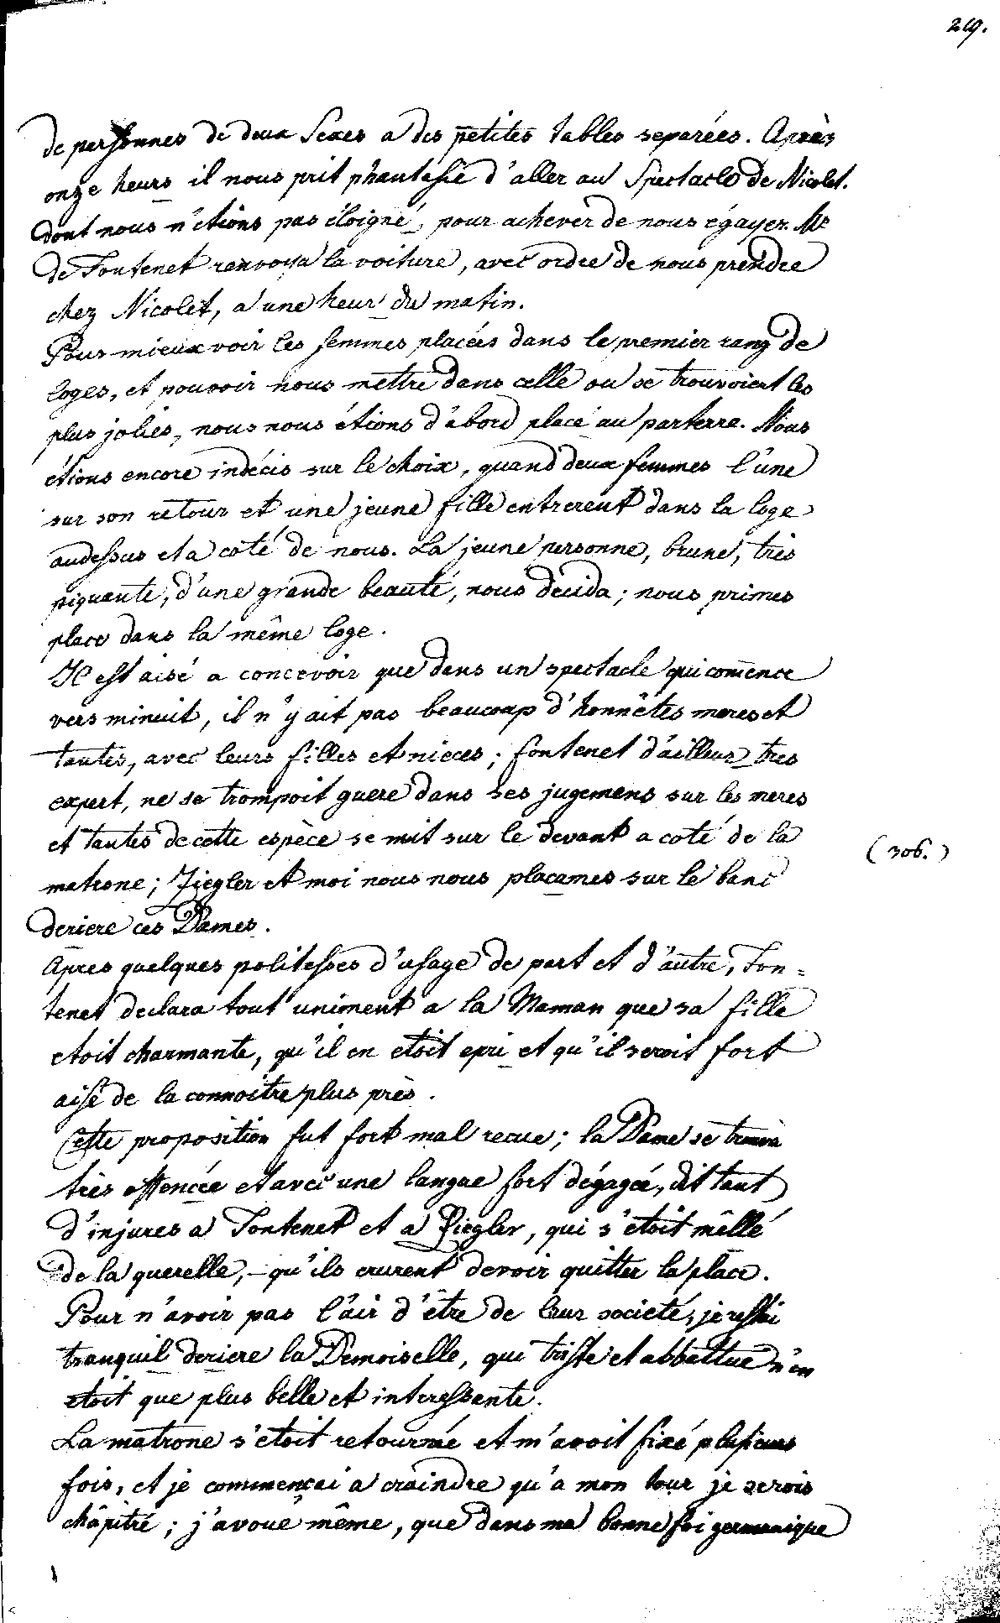 219.
de personnes de deux Sexes a des petites tables separées. Après
onze heurs il nous prit phantasie d'aller au Spectacle de Nicolet.
dont nous n'étions pas éloigné, pour achever de nous égayer. Mr
de Fontenet renvoya la voiture, avec ordre de nous prendre
chez Nicolet, a une heur du matin.
Pour mieux voir les femmes placées dans le premier rang de
loges, et pouvoir nous mettre dans celle ou se trouvoient les
plus jolies, nous nous étions d'abord placé au parterre. Nous
étions encore indécis sur le choix, quand deux femmes l'une
sur son retour et une jeune fille entrerent dans la loge
audessus et a coté de nous. La jeune personne, brune, très
piquante, d'une grande beauté, nous décida; nous primes
place dans la même loge.
Il est aisé a concevoir que dans un spectacle qui comence
vers minuit, il n'y ait pas beaucoup d'honnêtes meres et
tantes, avec leurs filles et nieces; fontenet d'ailleurs tres
expert, ne se trompoit guere dans ses jugemens sur les meres
et tantes de cette espèce se mit sur le devant a coté de la
(306.)
matrone; Ziegler et moi nous nous placames sur le banc
deriere ces Dames.
Apres quelques politesses d'usage de part et d'autre, Fon=
tenet declara tout uniment a la Maman que sa fille
etoit charmante, qu'il en etoit epri et qu'il seroit fort
aise de la connoitre plus près.
Cette proposition fut fort mal recue; la Dame se trouva
très offencée et avec une langue fort dégagée, dit tant
d'injures a Fontenet et a Ziegler, qui s'etoit mêllé
de la querelle, qu'ils crurent devoir quitter la place.
Pour n'avoir pas l'air d'être de leur societé, je restai
tranquil deriere la Demoiselle, qui triste et abbattue n'en
etoit que plus belle et interessante.
La matrone s'etoit retournée et m'avoit fixé plusieurs
fois, et je commençai a craindre qu'a mon tour je serois
châpitré; j'avoue même, que dans ma bonne foi germanique